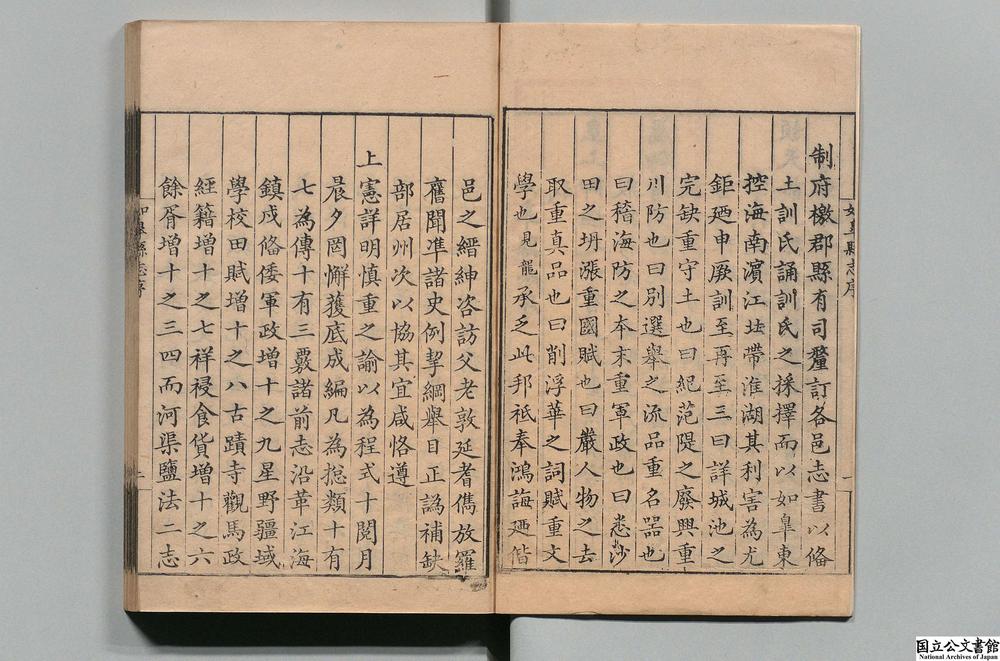 制府檄郡縣有司釐訂各邑志書以俻
土訓氏誦訓氏之採擇而以如臯東
控海南濱江北帶淮湖其利害為尤
鉅廼申厥訓至再至三曰詳城池之
完缺重守土也曰紀范隄之廢興重
川防也曰別選舉之流品重名器也
曰稽海防之本末重軍政也曰悉沙
田之坍漲重國賦也曰嚴人物之去
取重真品也曰削浮華之詞賦重文
學也見龍承乏此邦祗奉鴻誨廼偕
如臯縣志序
一
邑之縉紳咨訪父老敦延耆儁放羅
舊聞準諸史例挈綱舉目正譌補缺
部居州次以協其宜咸恪遵
上憲詳明慎重之諭以為程式十閱月
晨夕罔懈獲底成編凡為揔類十有
七為傳十有三覈諸前志沿革江海
鎮戍俻倭軍政增十之九星野疆域
學校田賦增十之八古蹟寺觀馬政
經籍增十之七祥祲食貨增十之六
餘胥增十之三四而河渠鹽法二志
如臯縣志序
二
国立公文書館
National Archives of Japan